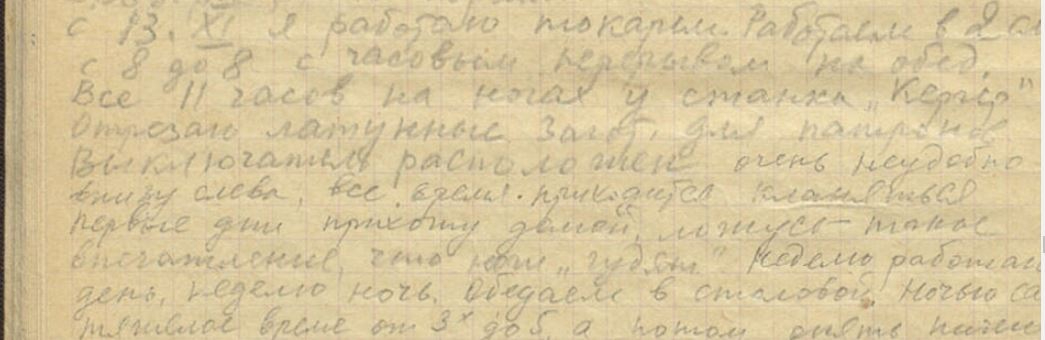 с 13. XI я работаю токарем. Работаем в 2
с 8 до 8 с часовым перерывом на обед.
Все 11 часов на ногах у станка „Кергер"
Отрезаю латунные загот. для патронов
Выключатель расположен очень неудобно
внизу слева, все время приходится кланяться
первые дни прихожу домой, ложусь такое
впечатление, что ноги „гудят" Неделю работаем
день, неделю ночь. Обедаем в столовой. Ночью
тяжелое время от 3х до 5, а потом опять